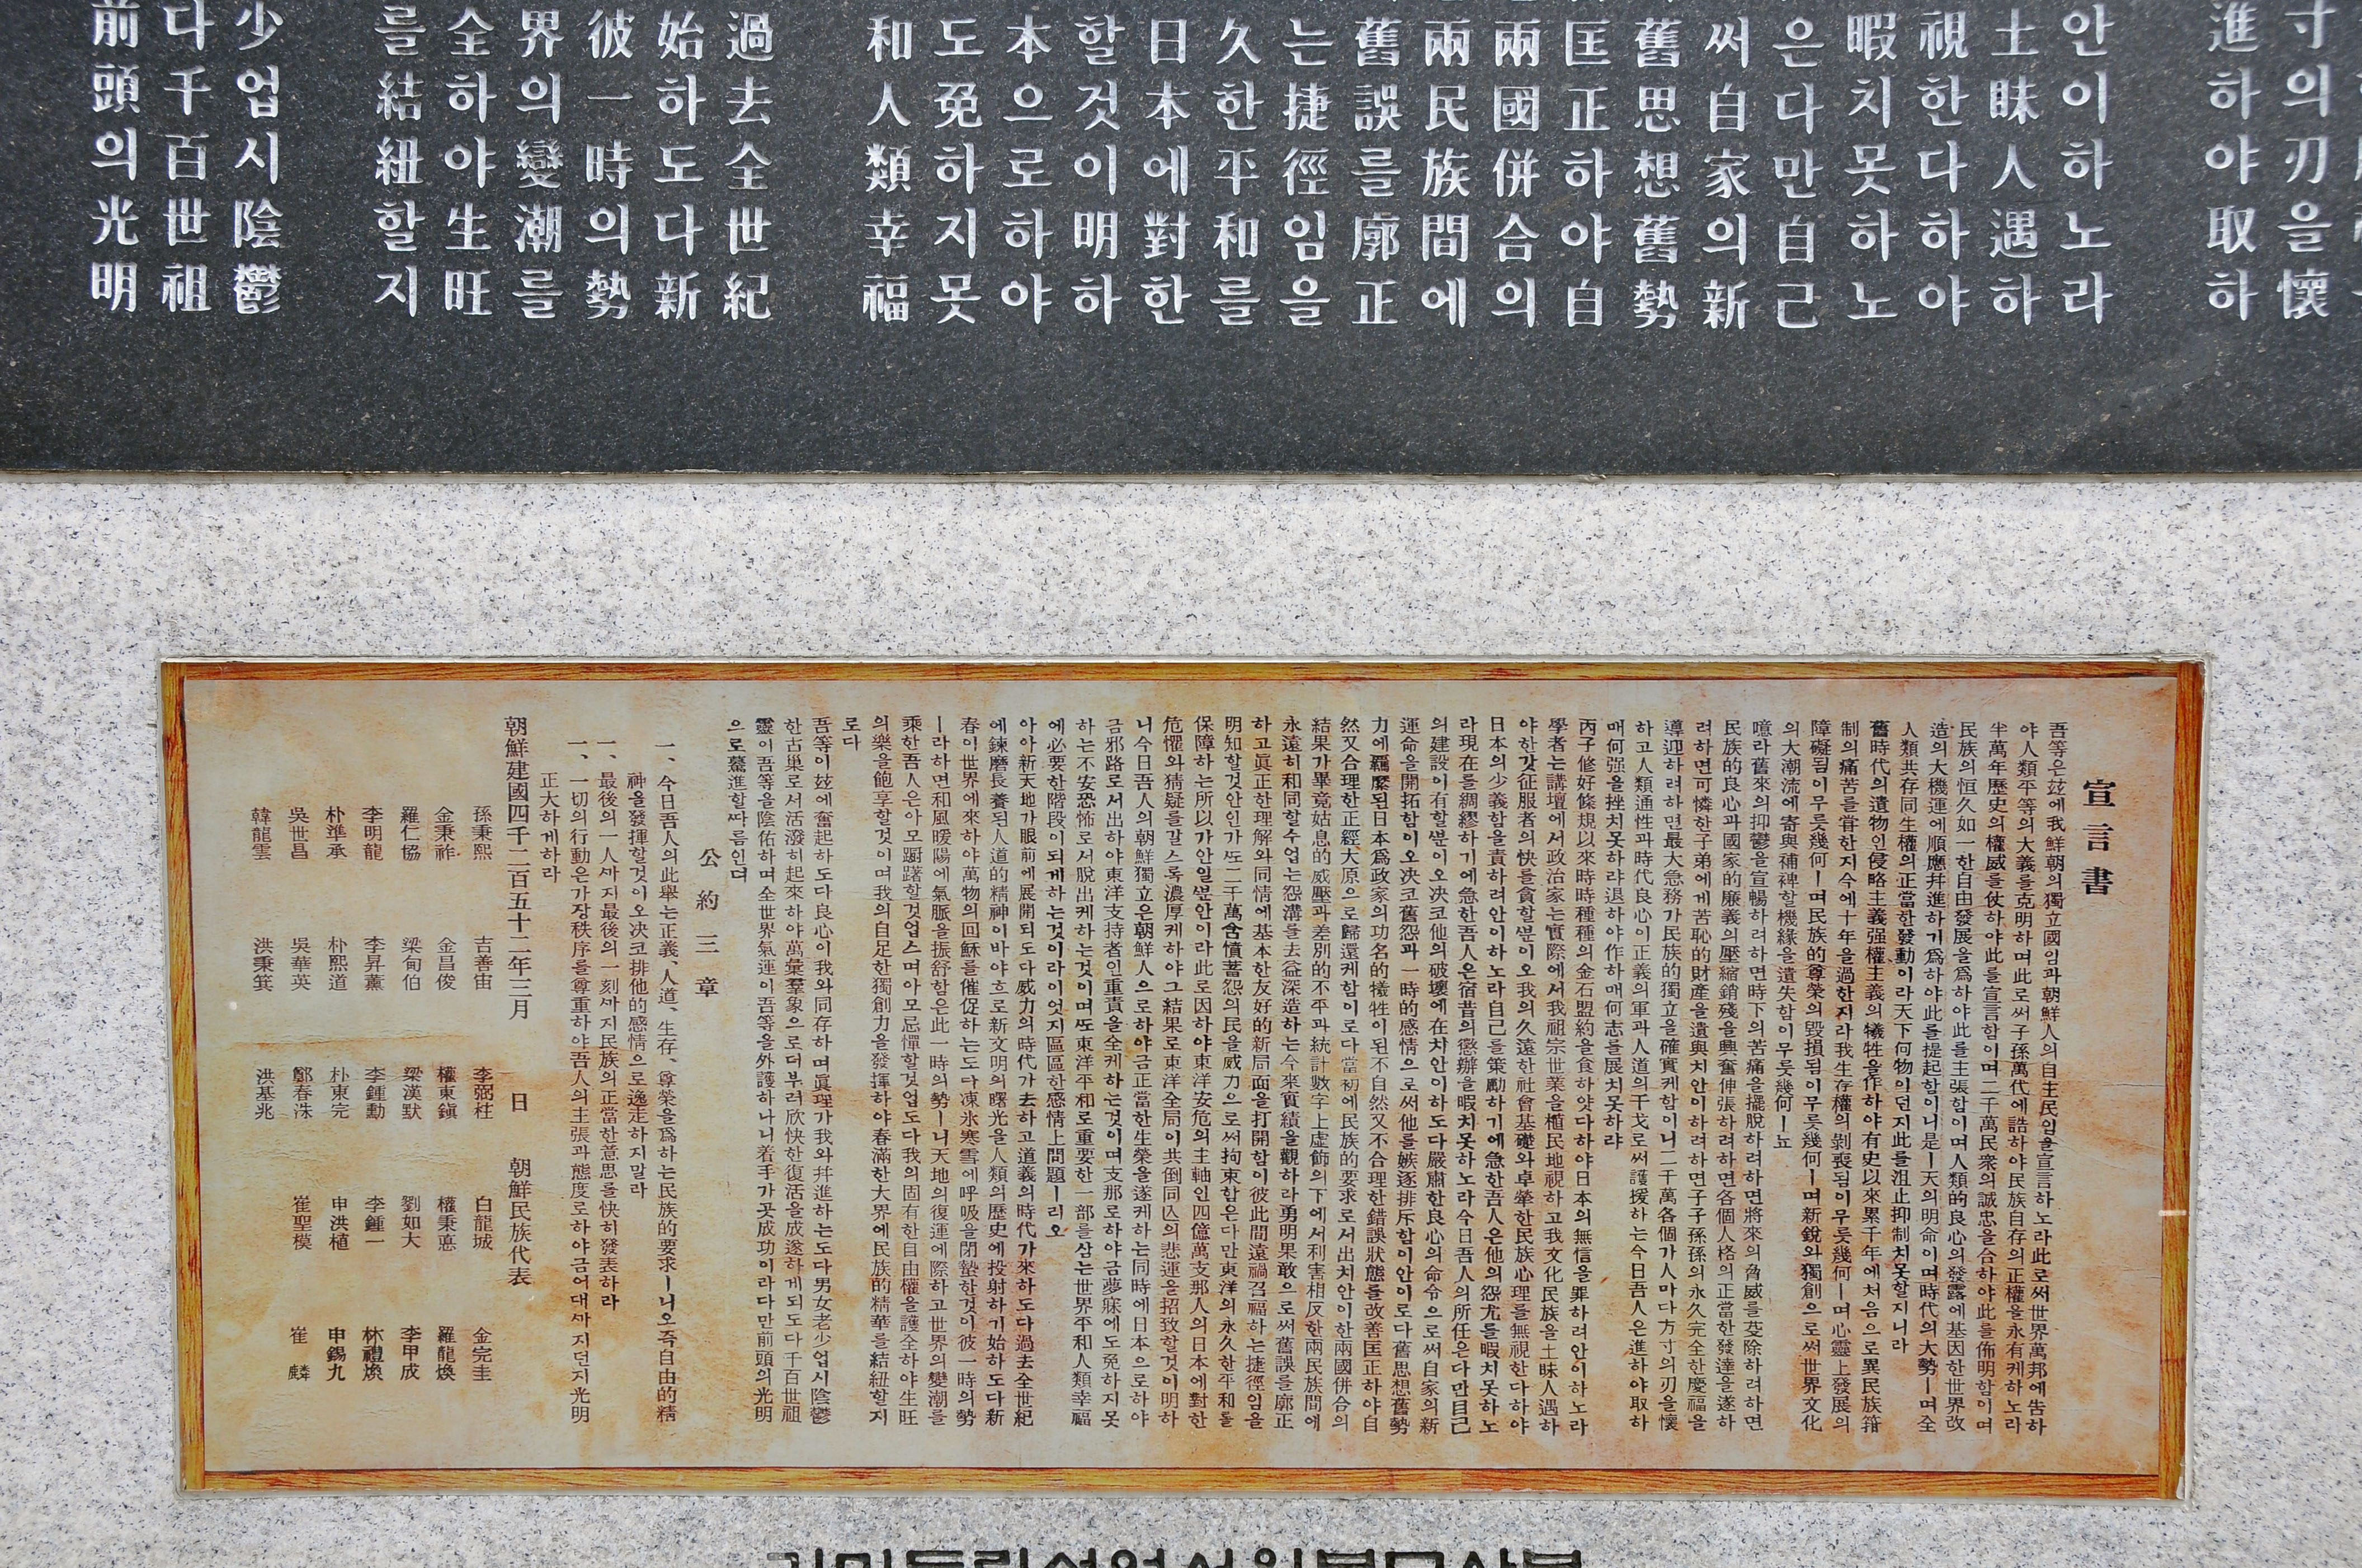 寸의刃을懷
進하야取하
안이하노라
土眛人遇하
視한다하야
暇치못하노
은다만自己
써自家의新
舊思想舊勢
匡正하야自
兩國併合의
兩民族間에
舊誤를廓正
는捷徑임을
久한平和를
日本에對한
할것이明하
本으로하야
도免하지못
和人類幸福
過去全世紀
始하도다新
彼一時의勢
界의變潮를
全하야生旺
를結紐할지
少업시陰鬱
다千百世祖
前頭의光明
宣言書
吾等은玆에我鮮朝의獨立國임과朝鮮人의自主民임을宣言하노라此로써世界萬邦에告하
야人類平等의大義를克明하며此로써子孫萬代에誥하야民族自存의正權을永有케하노라
半萬年歷史의權威를仗하야此를宣言함이며二千萬民衆의誠忠을合하야此를佈明함이며
民族의恒久如一한自由發展을爲하야此를主張함이며人類的良心의發露에基因한世界改
造의大機運에順應幷進하기爲하야此를提起함이니是ㅣ天의明命이며時代의大勢ㅣ며全
人類共存同生權의正當한發動이라天下何物이던지此를沮止抑制치못할지니라
舊時代의遺物인侵略主義强權主義의犧牲을作하야有史以來累千年에처음으로異民族箝
制의痛苦를甞한지今에十年을過한지라我生存權의剝喪됨이무릇幾何ㅣ며心靈上發展의
障礙됨이무릇幾何ㅣ며民族的尊榮의毁損됨이무릇幾何ㅣ며新銳와獨創으로써世界文化
의大潮流에寄與補裨할機緣을遺失함이무릇幾何ㅣ뇨
噫라舊來의抑鬱을宣暢하려하면時下의苦痛을擺脫하려하면將來의脅威를芟除하려하면
民族的良心과國家的廉義의壓縮銷殘을興奮伸張하려하면各個人格의正當한發達을遂하
려하면可憐한子弟에게苦恥的財產을遺與치안이하려하면子子孫孫의永久完全한慶福을
導迎하려하면最大急務가民族的獨立을確實케함이니二千萬各個가人마다方寸의刃을懷
하고人類通性과時代良心이正義의軍과人道의干戈로써護援하는今日吾人은進하야取하
매何强을挫치못하랴退하야作하매何志를展치못하랴
丙子修好條規以來時時種種의金石盟約을食하얏다하야日本의無信을罪하려안이하노라
學者는講壇에서政治家는實際에서我祖宗世業을植民地視하고我文化民族을土眛人遇하
야한갓征服者의快를貪할뿐이오我의久遠한社會基礎와卓犖한民族心理를無視한다하야
日本의少義함을責하려안이하노라自己를策勵하기에急한吾人은他의怨尤를暇치못하노
라現在를綢繆하기에急한吾人은宿昔의懲辦을暇치못하노라今日吾人의所任은다만自己
의建設이有할뿐이오決코他의破壞에在치안이하도다嚴肅한良心의命令으로써自家의新
運命을開拓함이오決코舊怨과一時的感情으로써他를嫉逐排斥함이안이로다舊思想舊勢
力에羈縻된日本爲政家의功名的犧牲이된不自然又不合理한錯誤狀態를改善匡正하야自
然又合理한正經大原으로歸還케함이로다當初에民族的要求로서出치안이한兩國併合의
結果가畢竟姑息的威壓과差別的不平과統計數字上虛飾의下에서利害相反한兩民族間에
永遠히和同할수업는怨溝를去益深造하는今來實績을觀하라勇明果敢으로써舊誤를廓正
하고眞正한理解와同情에基本한友好的新局面을打開함이彼此間遠禍召福하는捷徑임을
明知할것안인가또二千萬含憤蓄怨의民을威力으로써拘束함은다만東洋의永久한平和를
保障하는所以가안일뿐안이라此로因하야東洋安危의主軸인四億萬支那人의日本에對한
危懼와猜疑를갈스록濃厚케하야그結果로東洋全局이共倒同亡의悲運을招致할것이明하
니今日吾人의朝鮮獨立은朝鮮人으로하야금正當한生榮을遂케하는同時에日本으로하야
금邪路로서出하야東洋支持者인重責을全케하는것이며支那로하야금夢寐에도免하지못
하는不安恐怖로서脫出케하는것이며또東洋平和로重要한一部를삼는世界平和人類幸福
에必要한階段이되게하는것이라이엇지區區한感情上問題ㅣ리오
아아新天地가眼前에展開되도다威力의時代가去하고道義의時代가來하도다過去全世紀
에鍊磨長養된人道的精神이바야흐로新文明의曙光을人類의歷史에投射하기始하도다新
春이世界에來하야萬物의回穌를催促하는도다凍氷寒雪에呼吸을閉蟄한것이彼一時의勢
ㅣ라하면和風暖陽에氣脈을振舒함은此一時의勢ㅣ니天地의復運에際하고世界의變潮를
乘한吾人은아모躕躇할것업스며아모忌憚할것업도다我의固有한自由權을護全하야生旺
의樂을飽享할것이며我의自足한獨創力을發揮하야春滿한大界에民族的精華를結紐할지
로다
吾等이玆에奮起하도다良心이我와同存하며眞理가我와幷進하는도다男女老少업시陰鬱
한古巢로서活潑히起來하야萬彙羣象으로더부러欣快한復活을成遂하게되도다千百世祖
靈이吾等을陰佑하며全世界氣運이吾等을外護하나니着手가곳成功이라다만前頭의光明
으로驀進할따름인뎌
公約三章
一、今日吾人의此擧는正義、人道、生存、尊榮을爲하는民族的要求ㅣ니오즉自由的精
神을發揮할것이오決코排他的感情으로逸走하지말라
一、最後의一人까지最後의一刻까지民族의正當한意思를快히發表하라
一、一切의行動은가장秩序를尊重하야吾人의主張과態度로하야금어대까지던지光明
正大하게하라
朝鮮建國四千二百五十二年三月 日 朝鮮民族代表
孫秉熙 吉善宙 李弼柱 白龍城 金完圭
金秉祚 金昌俊 權東鎭 權秉悳 羅龍煥
羅仁協 梁甸伯 梁漢默 劉如大 李甲成
李明龍 李昇薰 李鍾勳 李鍾一 林禮煥
朴準承 朴熙道 朴東完 申洪植 申錫九
吳世昌 吳華英 鄭春洙 崔聖模 崔麟
韓龍雲 洪秉箕 洪基兆